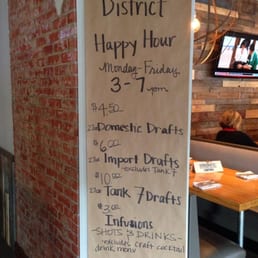 District
Happy Hour
Monday-Friday
3-7pm
$4.50
23oz Domestic Drafts
$6.00
23oz Import Drafts
excludes Tank 7
$10.00
23oz Tank 7 Drafts
$3.00
Infusions
-SHOTS & DRINKS-
-excludes craft cocktail
drink menu